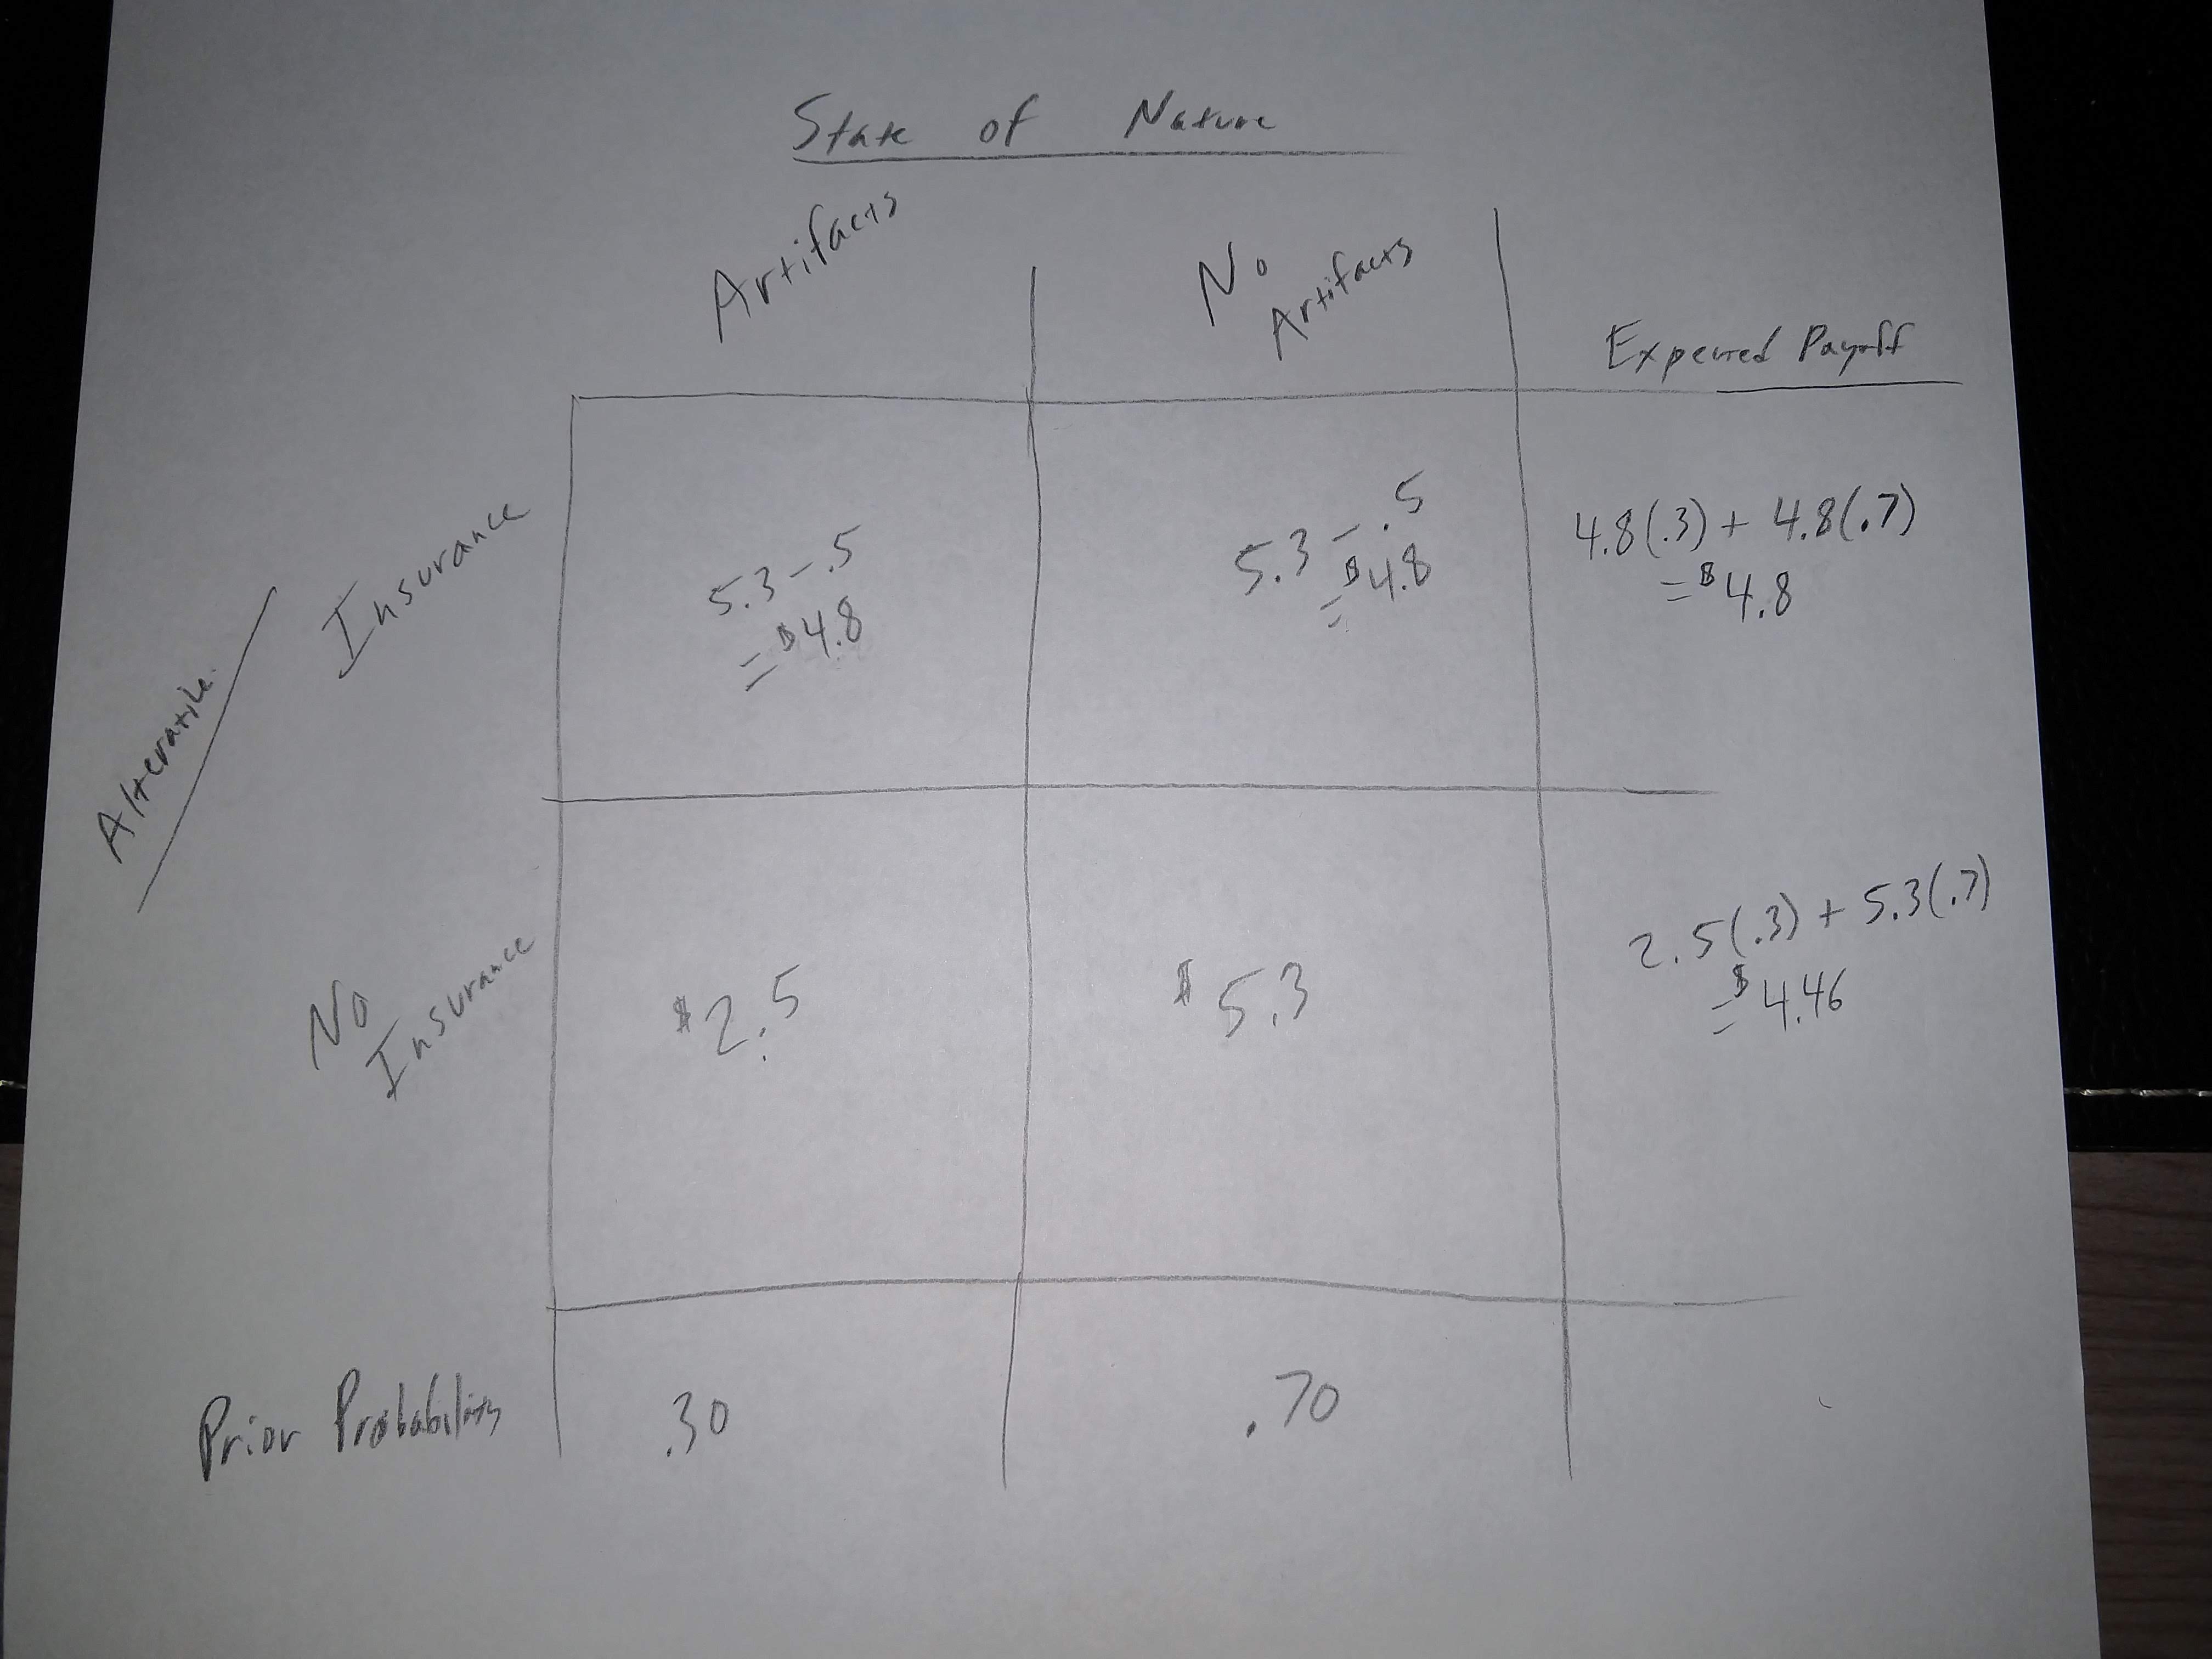 State of Nature
Artifacts
No
Artifacts
Expected Payoff
Alternative
Insurance
5.3 - .5
= $4.8
5.3 - .5
= $4.8
4.8(.3) + 4.8(.7)
= $4.8
No
Insurance
$2.5
$5.3
2.5(.3) + 5.3(.7)
= $4.46
Prior Probability
.30
.70